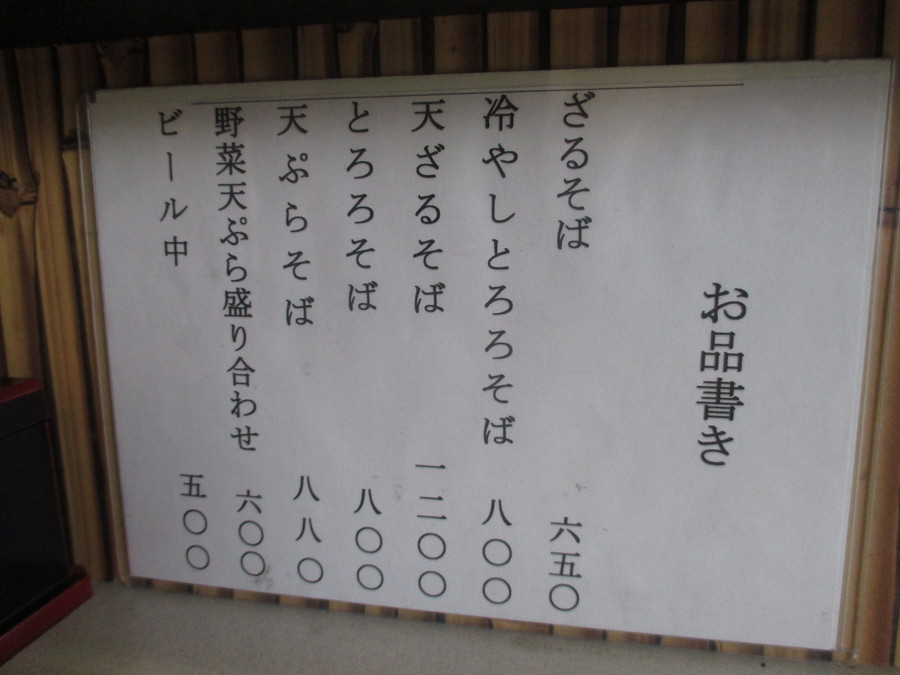 お品書き
ざるそば 六五〇
冷やしとろろそば 八〇〇
天ざるそば 一二〇〇
とろろそば 八〇〇
天ぷらそば 八八〇
野菜天ぷら盛り合わせ 六〇〇
ビール中 五〇〇